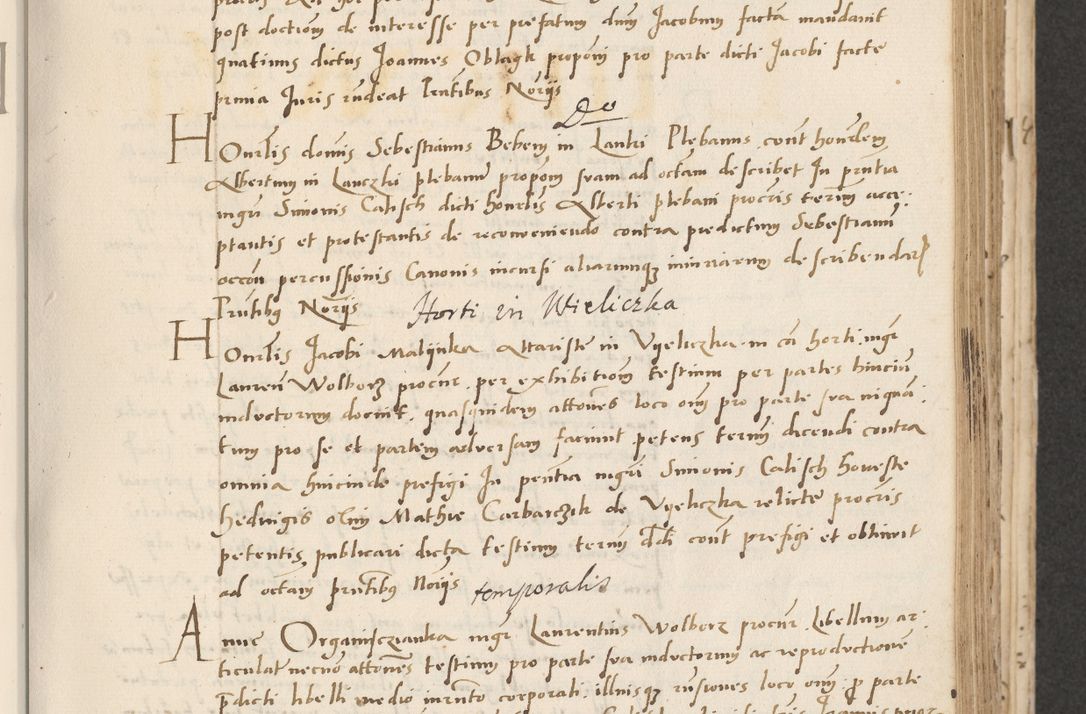 post doctiom de interesse per prefatum dnm Jacobum facta mandavit
quatinus dictus Joannes Oblagk proponi pro parte dicti Jacobi facte
pmia Juris rndeat Pntibus Norijs
Do
HOnrlis domis Sebestianus Bebem in Lantri Plebanus cont honrdem
Albertum in Lanczki plebanu propom suam ad octam describet In pntia
mgri Simonis Calisch dicti honrlis Alberti plebani procris termi acce:
ptantis et protestantis de reconveniendo contra predictum Sebestianu
occon percussionis Canonis incursi aliarumqz iniuriarum describendar
Pntibus Norijs
Horti in Wieliczka
HOnrlis Jacobi Malijnka Altariste in Vyeliczka in ca horti mgr
Lauren Wolberz procur per exhibitiom testium per partes hincin
inductorum docuit, quasquidem attones loco om pro parte sua inquan:
tum pro se et partem adversam faciunt petens termi dicendi contra
omnia hincinde prefigi In pntia mgri Simonis Calisch honeste
Hedvigis olim Mathie Carbarczik de Vyeliczka relicte procris
petentis publicari dicta testium term dicdi cont prefigi et obtinuit
ad octam pntibus Norijs
temporalis
Anne Organisczianka mgr Laurentius Wolberz procur Libellum ar:
ticulat necno attones testium pro parte sua inductorum ac reproductione
pdicti libelli medio iurnto corporali, illiusqz rnsiones loco om p parte